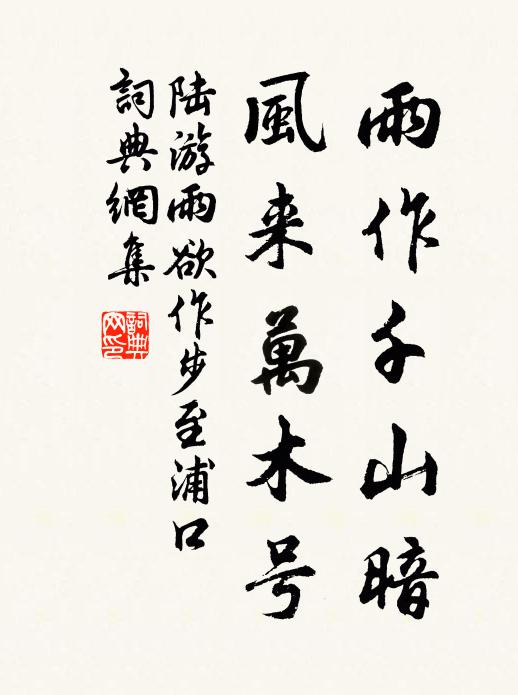 雨作千山暗
風来萬木号
陆游雨欲作步至浦口
詞典網集
詞典网印